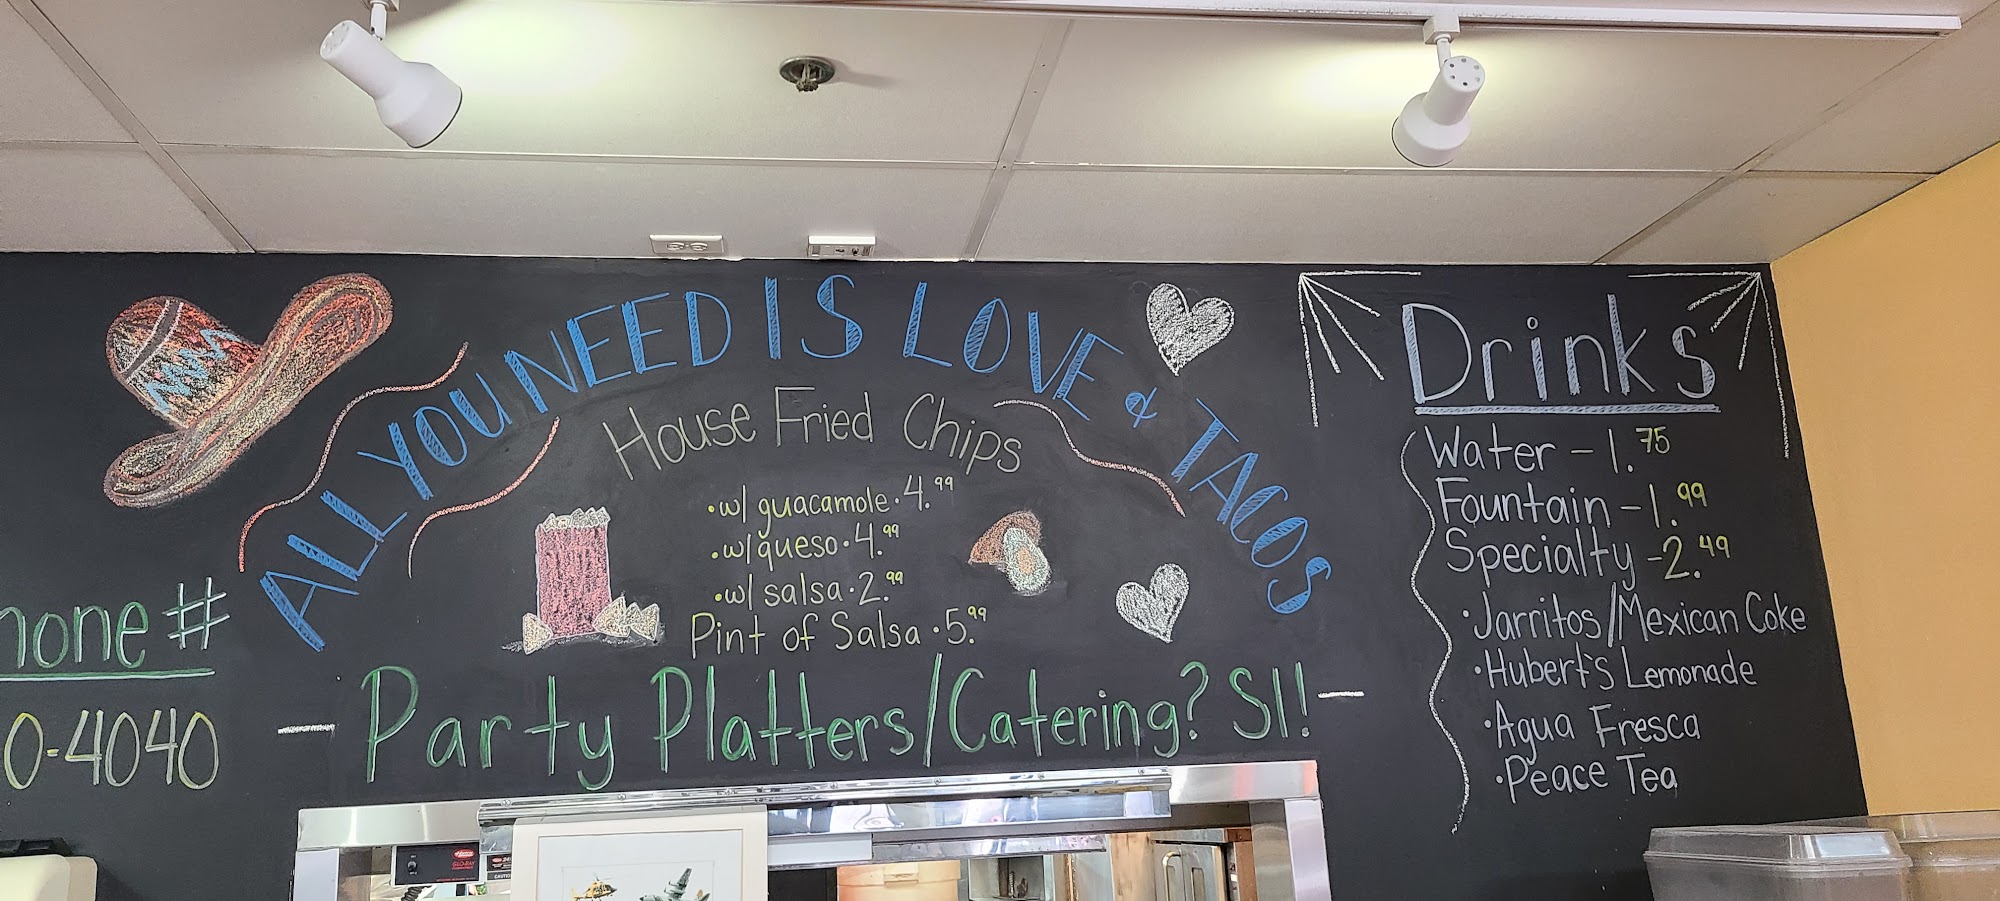 ALL YOU NEED IS LOVE & TACOS
House Fried Chips
• w/ guacamole • 4.99
• w/ queso • 4.99
• w/ salsa • 2.99
Pint of Salsa • 5.99
- Party Platters/Catering? SI! -
hone #
0-4040
Drinks
Water - 1.75
Fountain - 1.99
Specialty - 2.49
• Jarritos/Mexican Coke
• Hubert's Lemonade
• Agua Fresca
• Peace Tea